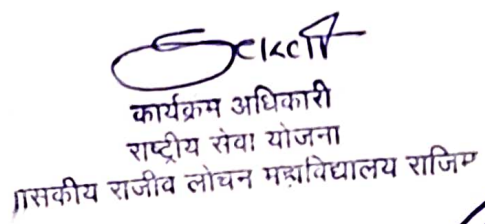 कार्यक्रम अधिकारी
राष्ट्रीय सेवा योजना
ासकीय राजीव लोचन महाविद्यालय राजिम